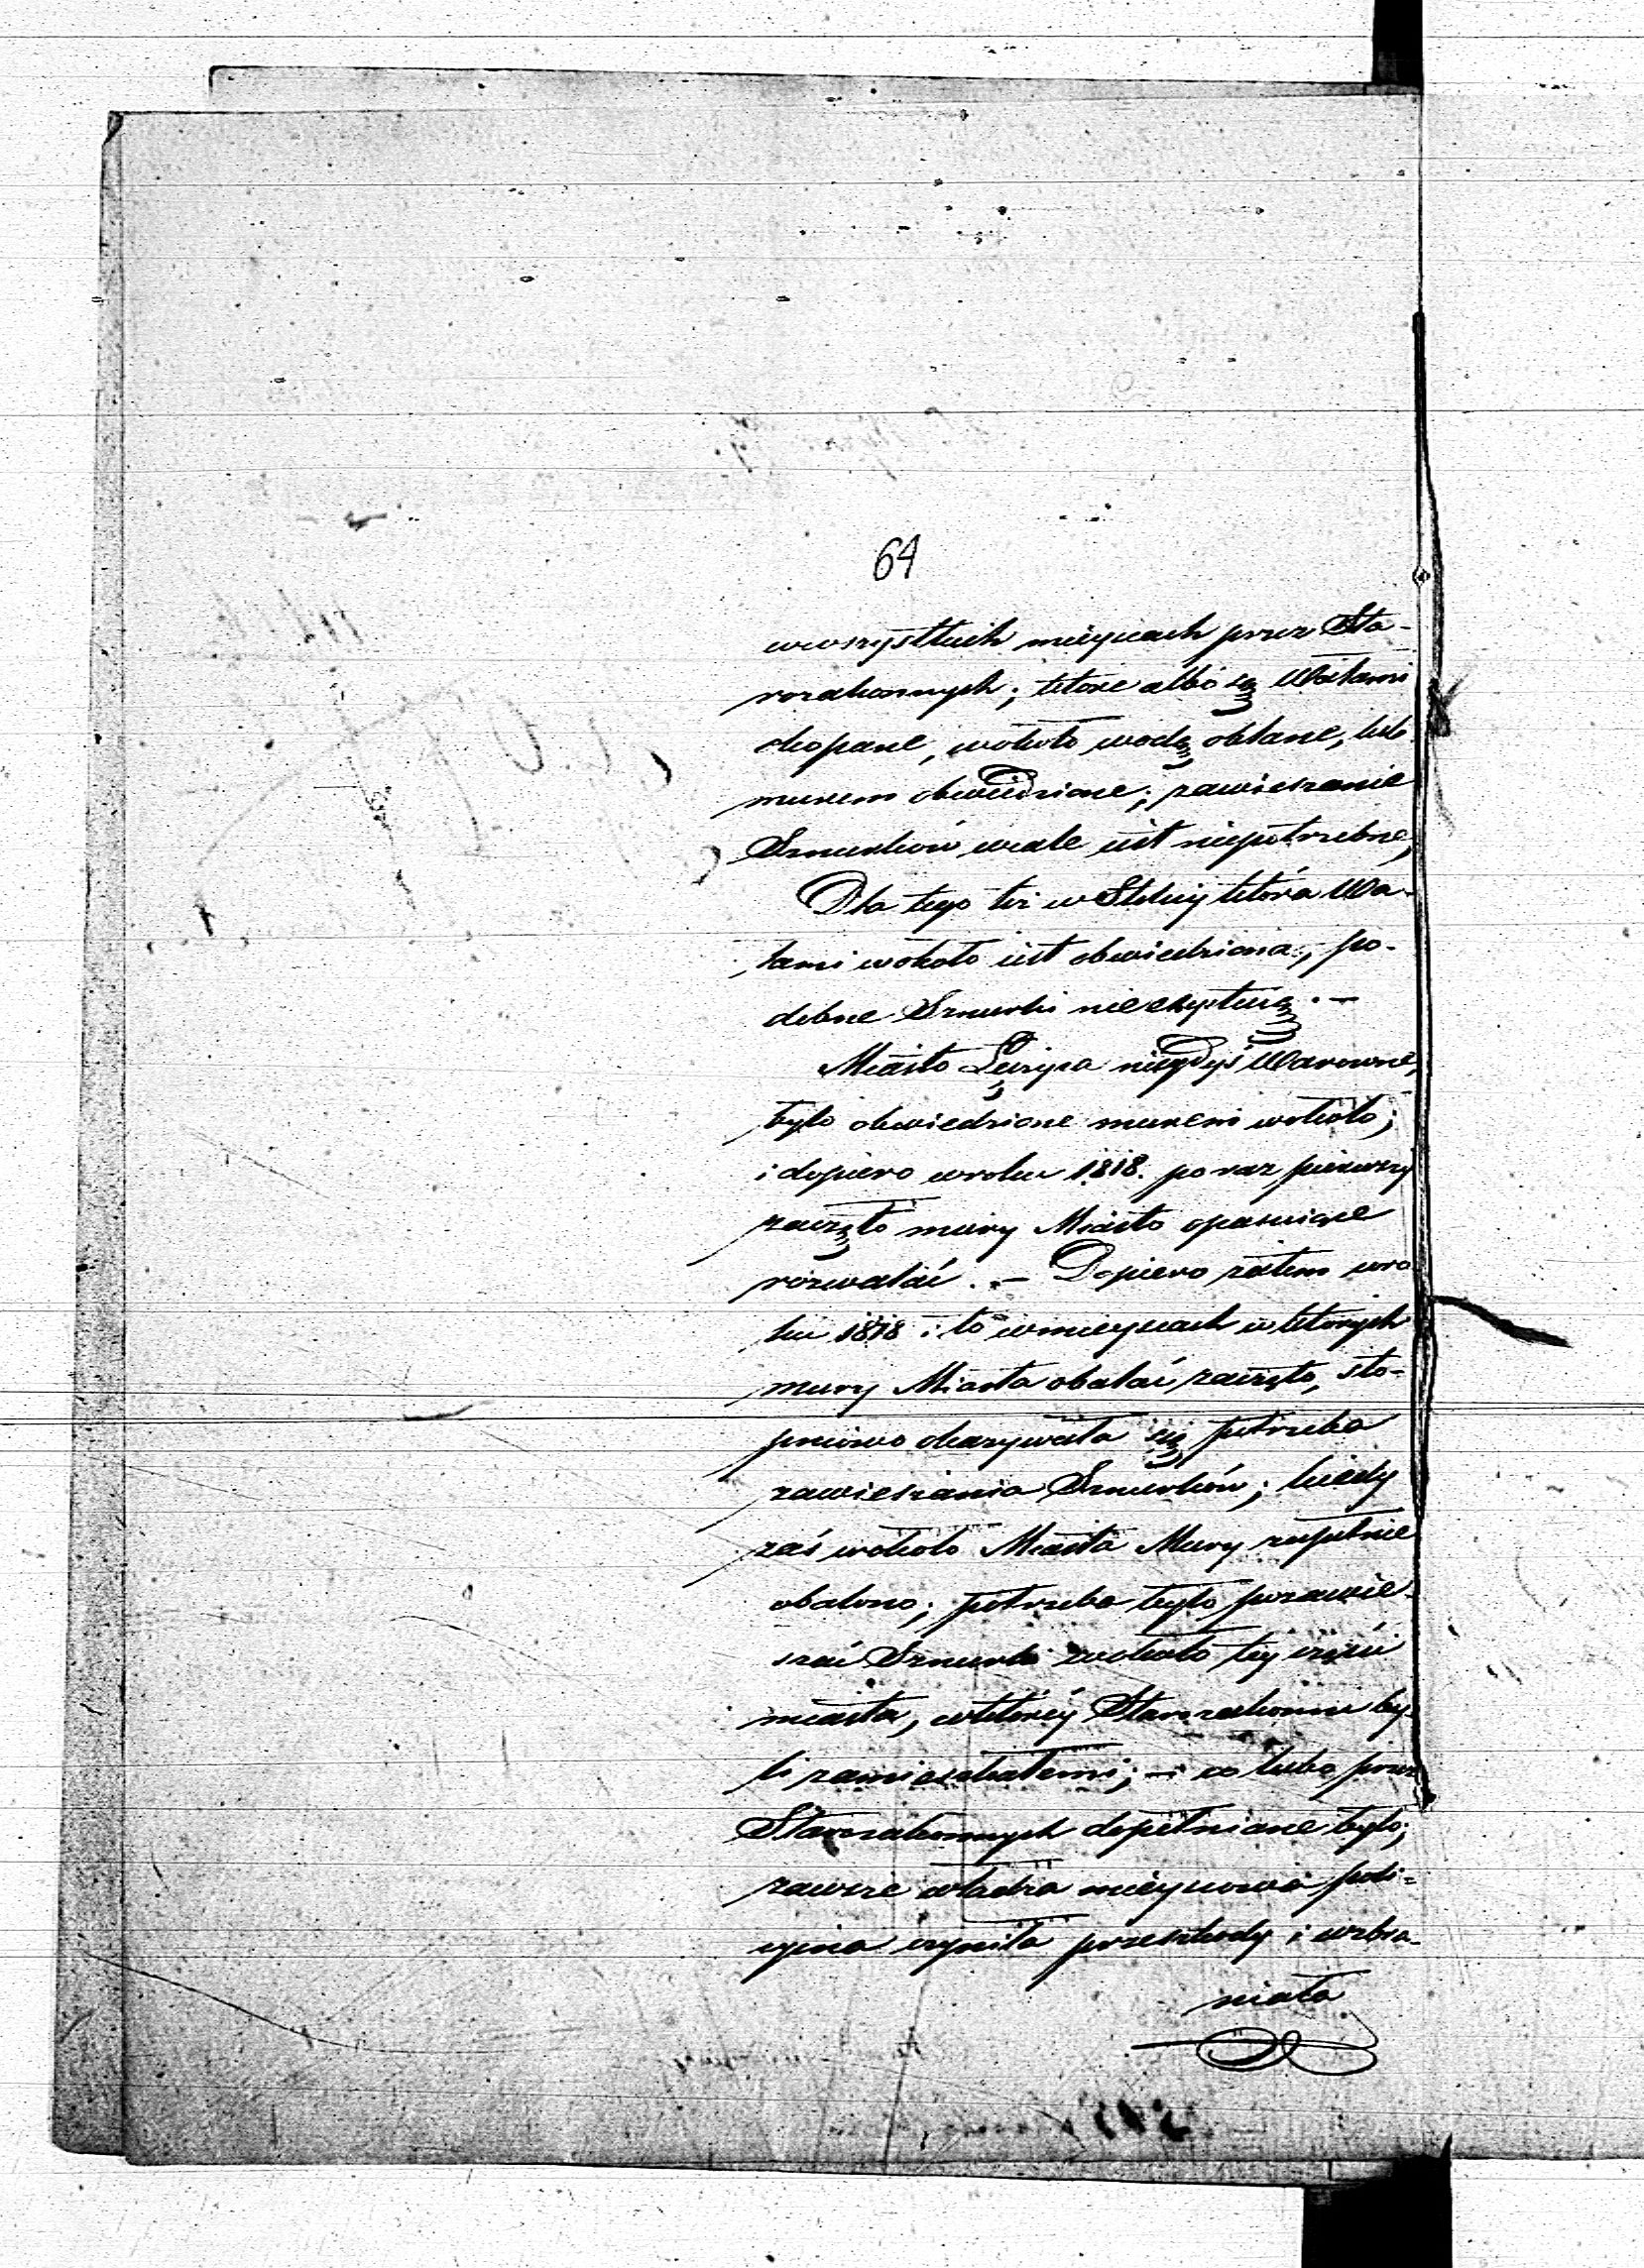 64
wwszystkich mieyscach przez Sta-
rozakonnych; które albo są Wałami
okopane, wokoło wodą oblane, lub
murem obwiedzione; zawieszanie
Sznurków wcale iest niepotrzebne,
Dla tego też w Stolicy która Wa-
łami wokoło iest obwiedziona, po-
dobne Sznurki nie exystuią. —
Miasto Łęczyca niegdyś Warowne,
było obwiedzione murem wokoło;
i dopiero wroku 1818. po raz pierwszy
zaczęto mury Miasto opasuiące
rozwalać. — Dopiero zatem wro
ku 1818 i to wmieyscach wktórych
mury Miasta obalać zaczęto, sto-
pniowo okazywała się potrzeba
zawieszania Sznurków; kiedy
zaś wokoło Miasta Mury zupełnie
obalono; potrzeba było pozawie-
szać Sznurki wokoło tej części
miasta, wktórey Starozakonni by-
li zamieszkałemi; — co lubo przez
Starozakonnych dopełniane było;
zawsze władza mieyscowa poli-
cyina czyniła przeszkody i wzbra-
niała